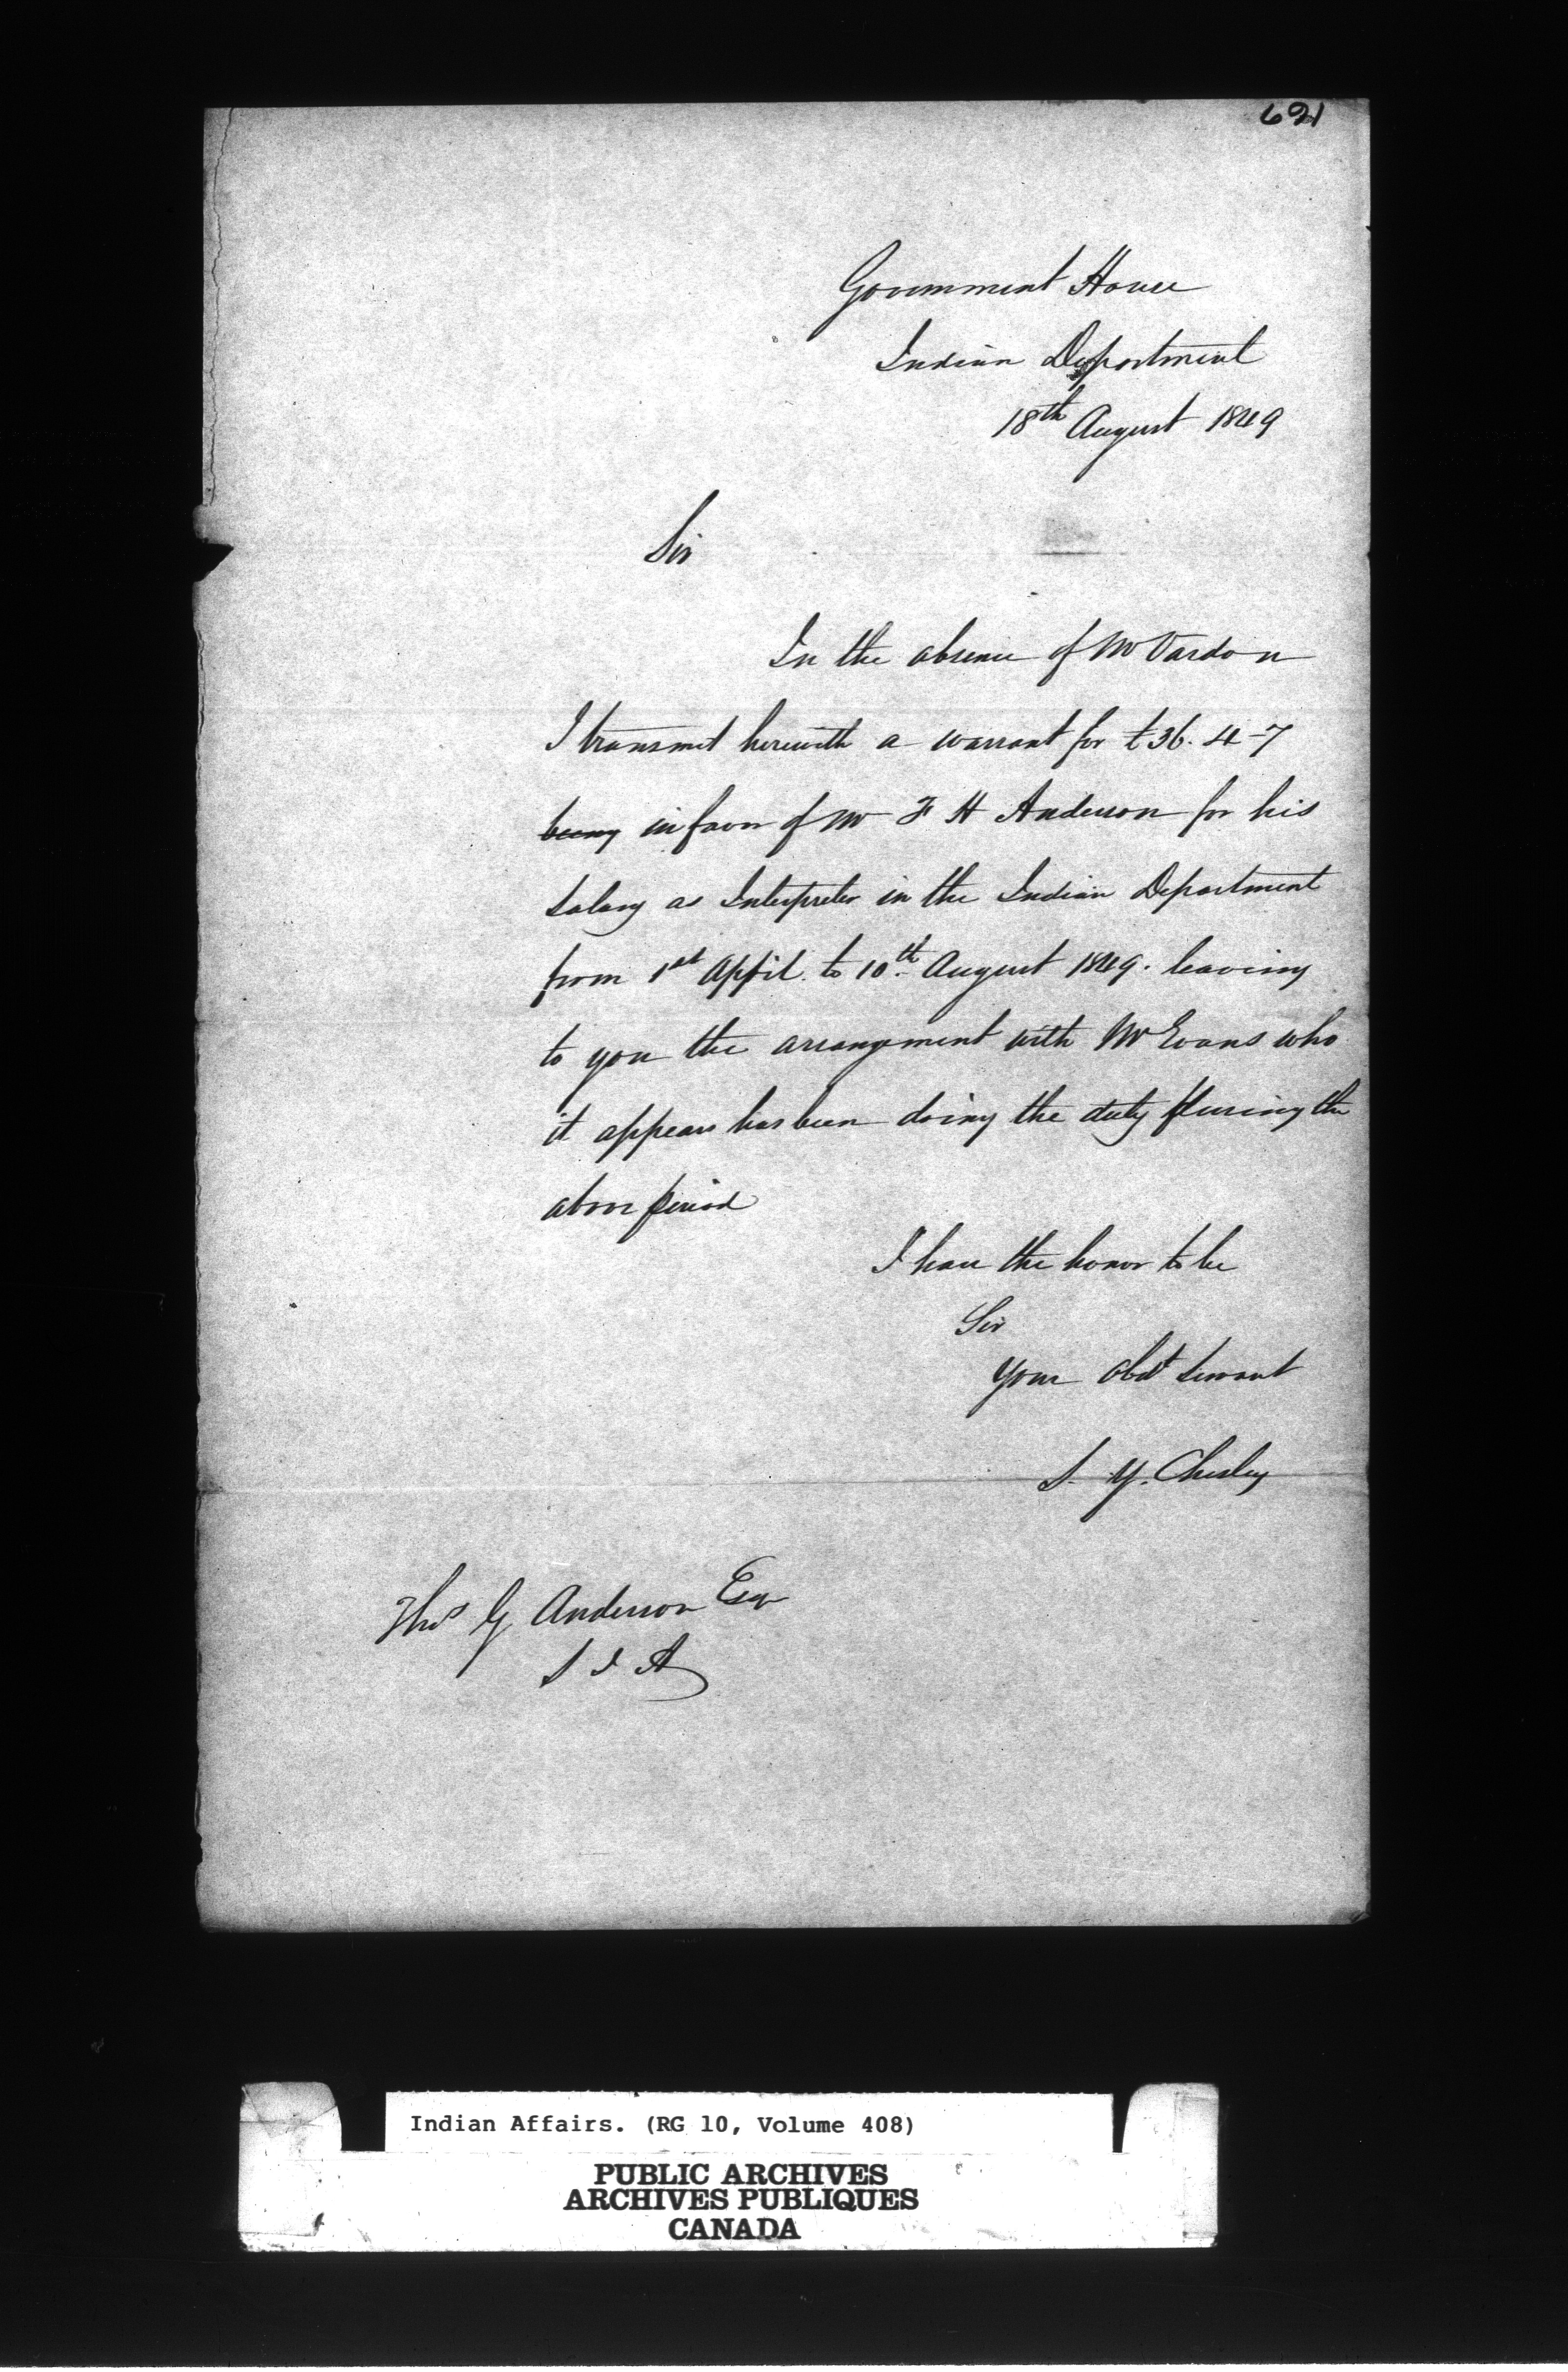 621
Government House
Indian Department
18th August 1849
Sir
In the absence of Mr Vardon
I transmit herewith a warrant for £36. 4-7
being in favor of Mr F H Anderson for his
Salary as Interpreter in the Indian Department
from 1st April to 10th August 1849. leaving
to you the arrangement with Mr Evans who
it appears has been doing the duty during the
above period
I have the honor to be
Sir
Your obdt Servant
S. Y. Chesley
Thos G Anderson Esqr
S I A
Indian Affairs. (RG 10, Volume 408)
PUBLIC ARCHIVES
ARCHIVES PUBLIQUES
CANADA